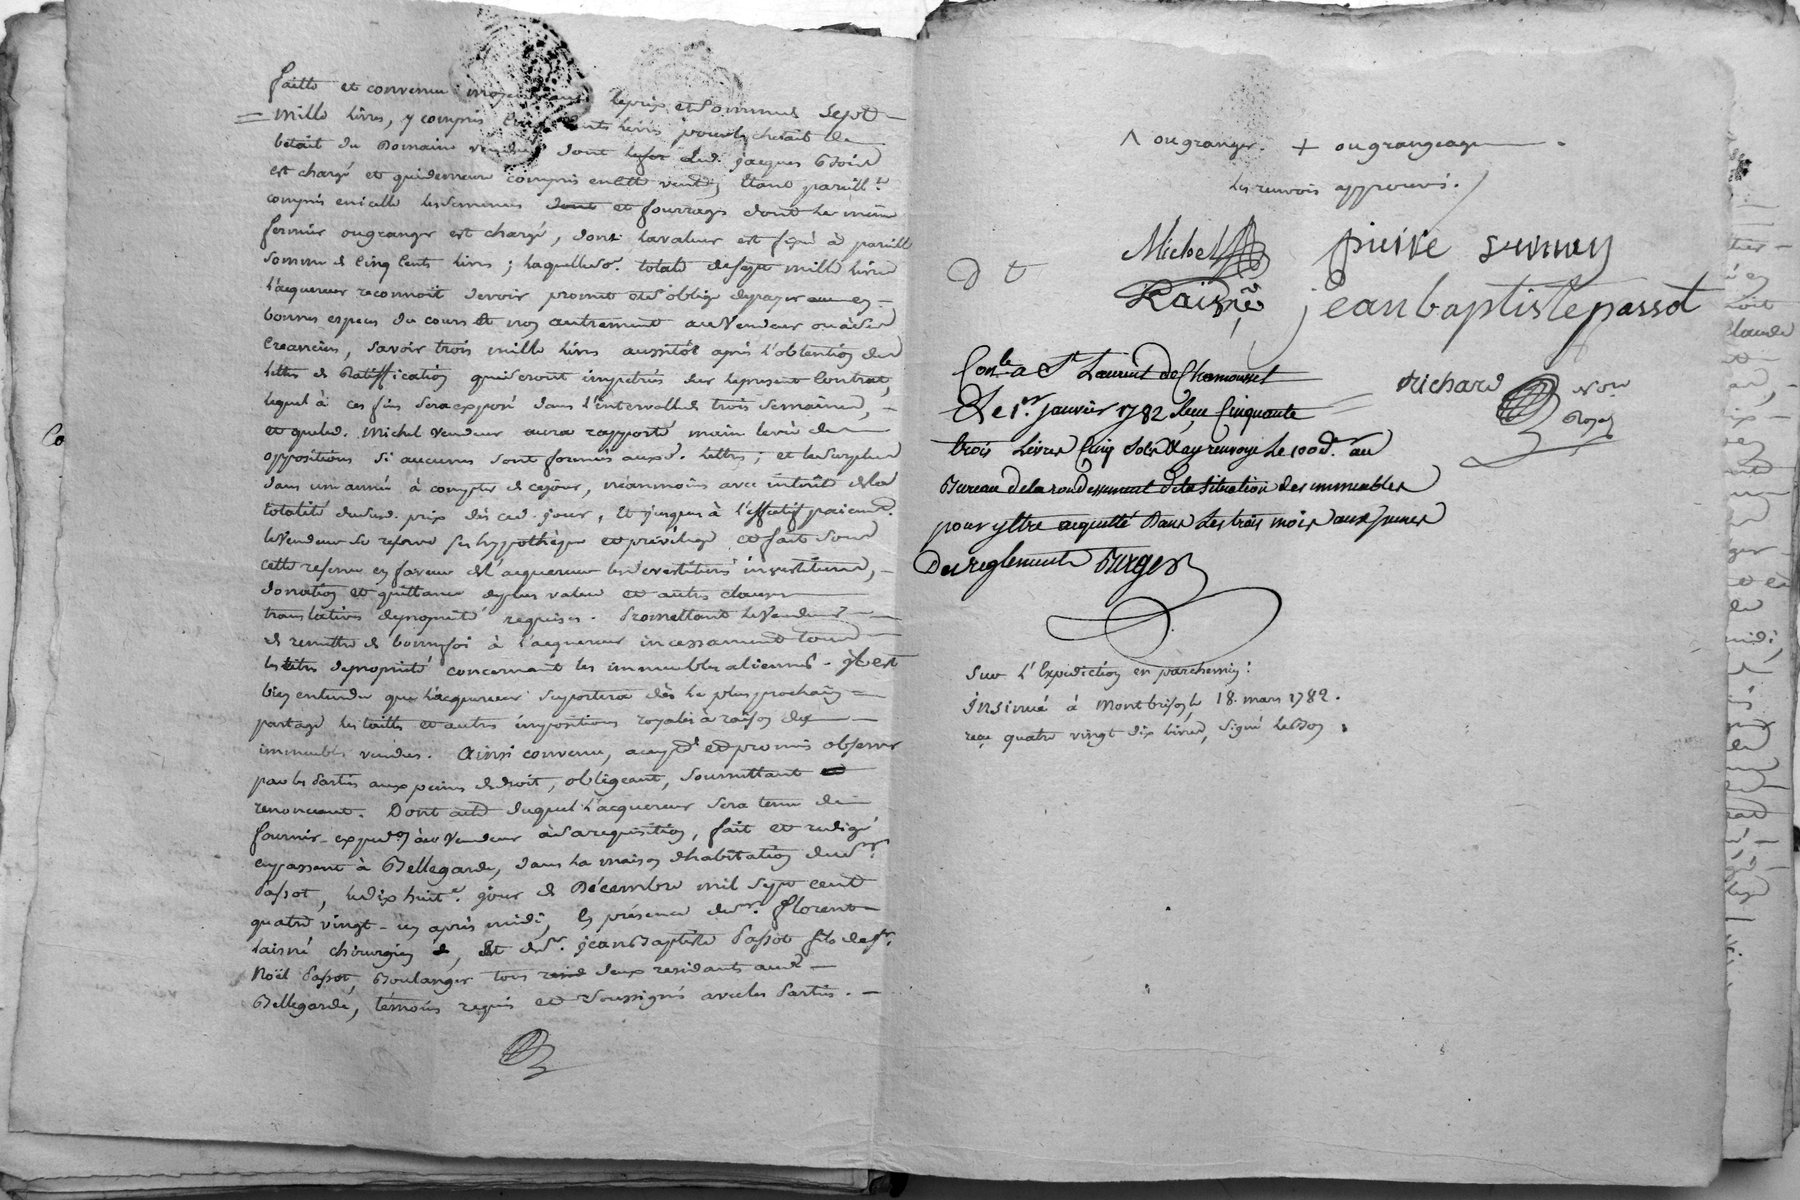 faitte et convenue moyennant le prix et somme de Sept
mille livres, y compris Cinq Cents livres pour le cheptail de
betail du Domaine vendu, dont led. jacques
est chargé et qui demeure compris en cette vente, Etant pareill.t
compris en icelle les semences dont et fourrages dont le même
fermier ou granger est chargé, dont la valeur est fixée à pareille
Somme de Cinq Cents livres ; laquelle so. totale de sept mille livres
l'acquereur reconnoit devoir promet et s'oblige de payer en
bonnes especes du cours et non autrement au Vendeur ou à ses
Creanciers, savoir trois mille livres aussitôt après l'obtention des
lettres de Ratiffication qui seront impetrées sur le present Contrat,
lequel à ces fins sera exposé dans l'intervalle de trois semaines,
et que led. Michel Vendeur aura rapporté main levée des
oppositions si aucunes sont formées auxd. lettres ; et le surplus
dans une année à compter de ce jour, neanmoins avec interêt de la
totalité dud. prix dès ced. jour, et jusques à l'effectif paiem.t
le Vendeur se reserve ses hypothèque et privilege et fait sous
cette reserve en faveur de l'acquereur les devestitures investitures,
donation et quittance de plus value et autres clauses
translatives de propriété requises. Promettant le Vendeur
de remettre de bonne foi à l'acquereur incessament tous
les titres de propriété concernant les immeubles alienés. Il est
bien entendu que l'acquereur suportera dès le plus prochain
partage les tailles et autres impositions royales à raison des
immeubles vendus. Ainsi convenu, accepté et promis observer
par les Parties aux peines de droit, obligeant, soumettant
renonceant. Dont acte duquel l'acquereur sera tenu de
fournir exped.on au Vendeur à sa requisition, fait et redigé
en passant à Bellegarde, dans la maison d'habitation du S.r
Passot, le dix huit.e jour de Décembre mil sept cent
quatre vingt-un après midi, En présence de s.r florent
laisné chirurgien, Et de s.r jean Baptiste Passot fils de s.r
Noël Passot, Boulanger tous deux residants aud.
Bellegarde, témoins requis et soussignés avec les Parties.
^ ou granger. + ou grangeage
les renvois approuvés.
Michel
pierre
Laisné
jean baptiste passot
Con.le a S.t Laurent de Chamousset
richard No.re
Royal
Le 1.er janvier 1782, Reçu Cinquante
trois Livres Cinq Sols Et ay renvoyé le 100 d. au
Bureau de la situation des immeubles
pour y Etre acquitté Dans Les trois mois aux peines
Des reglements Burger
Sur l'Expedicion en parchemin :
insinué à Montbrison le 18. mars 1782.
reçu quatre vingt dix livres, signé